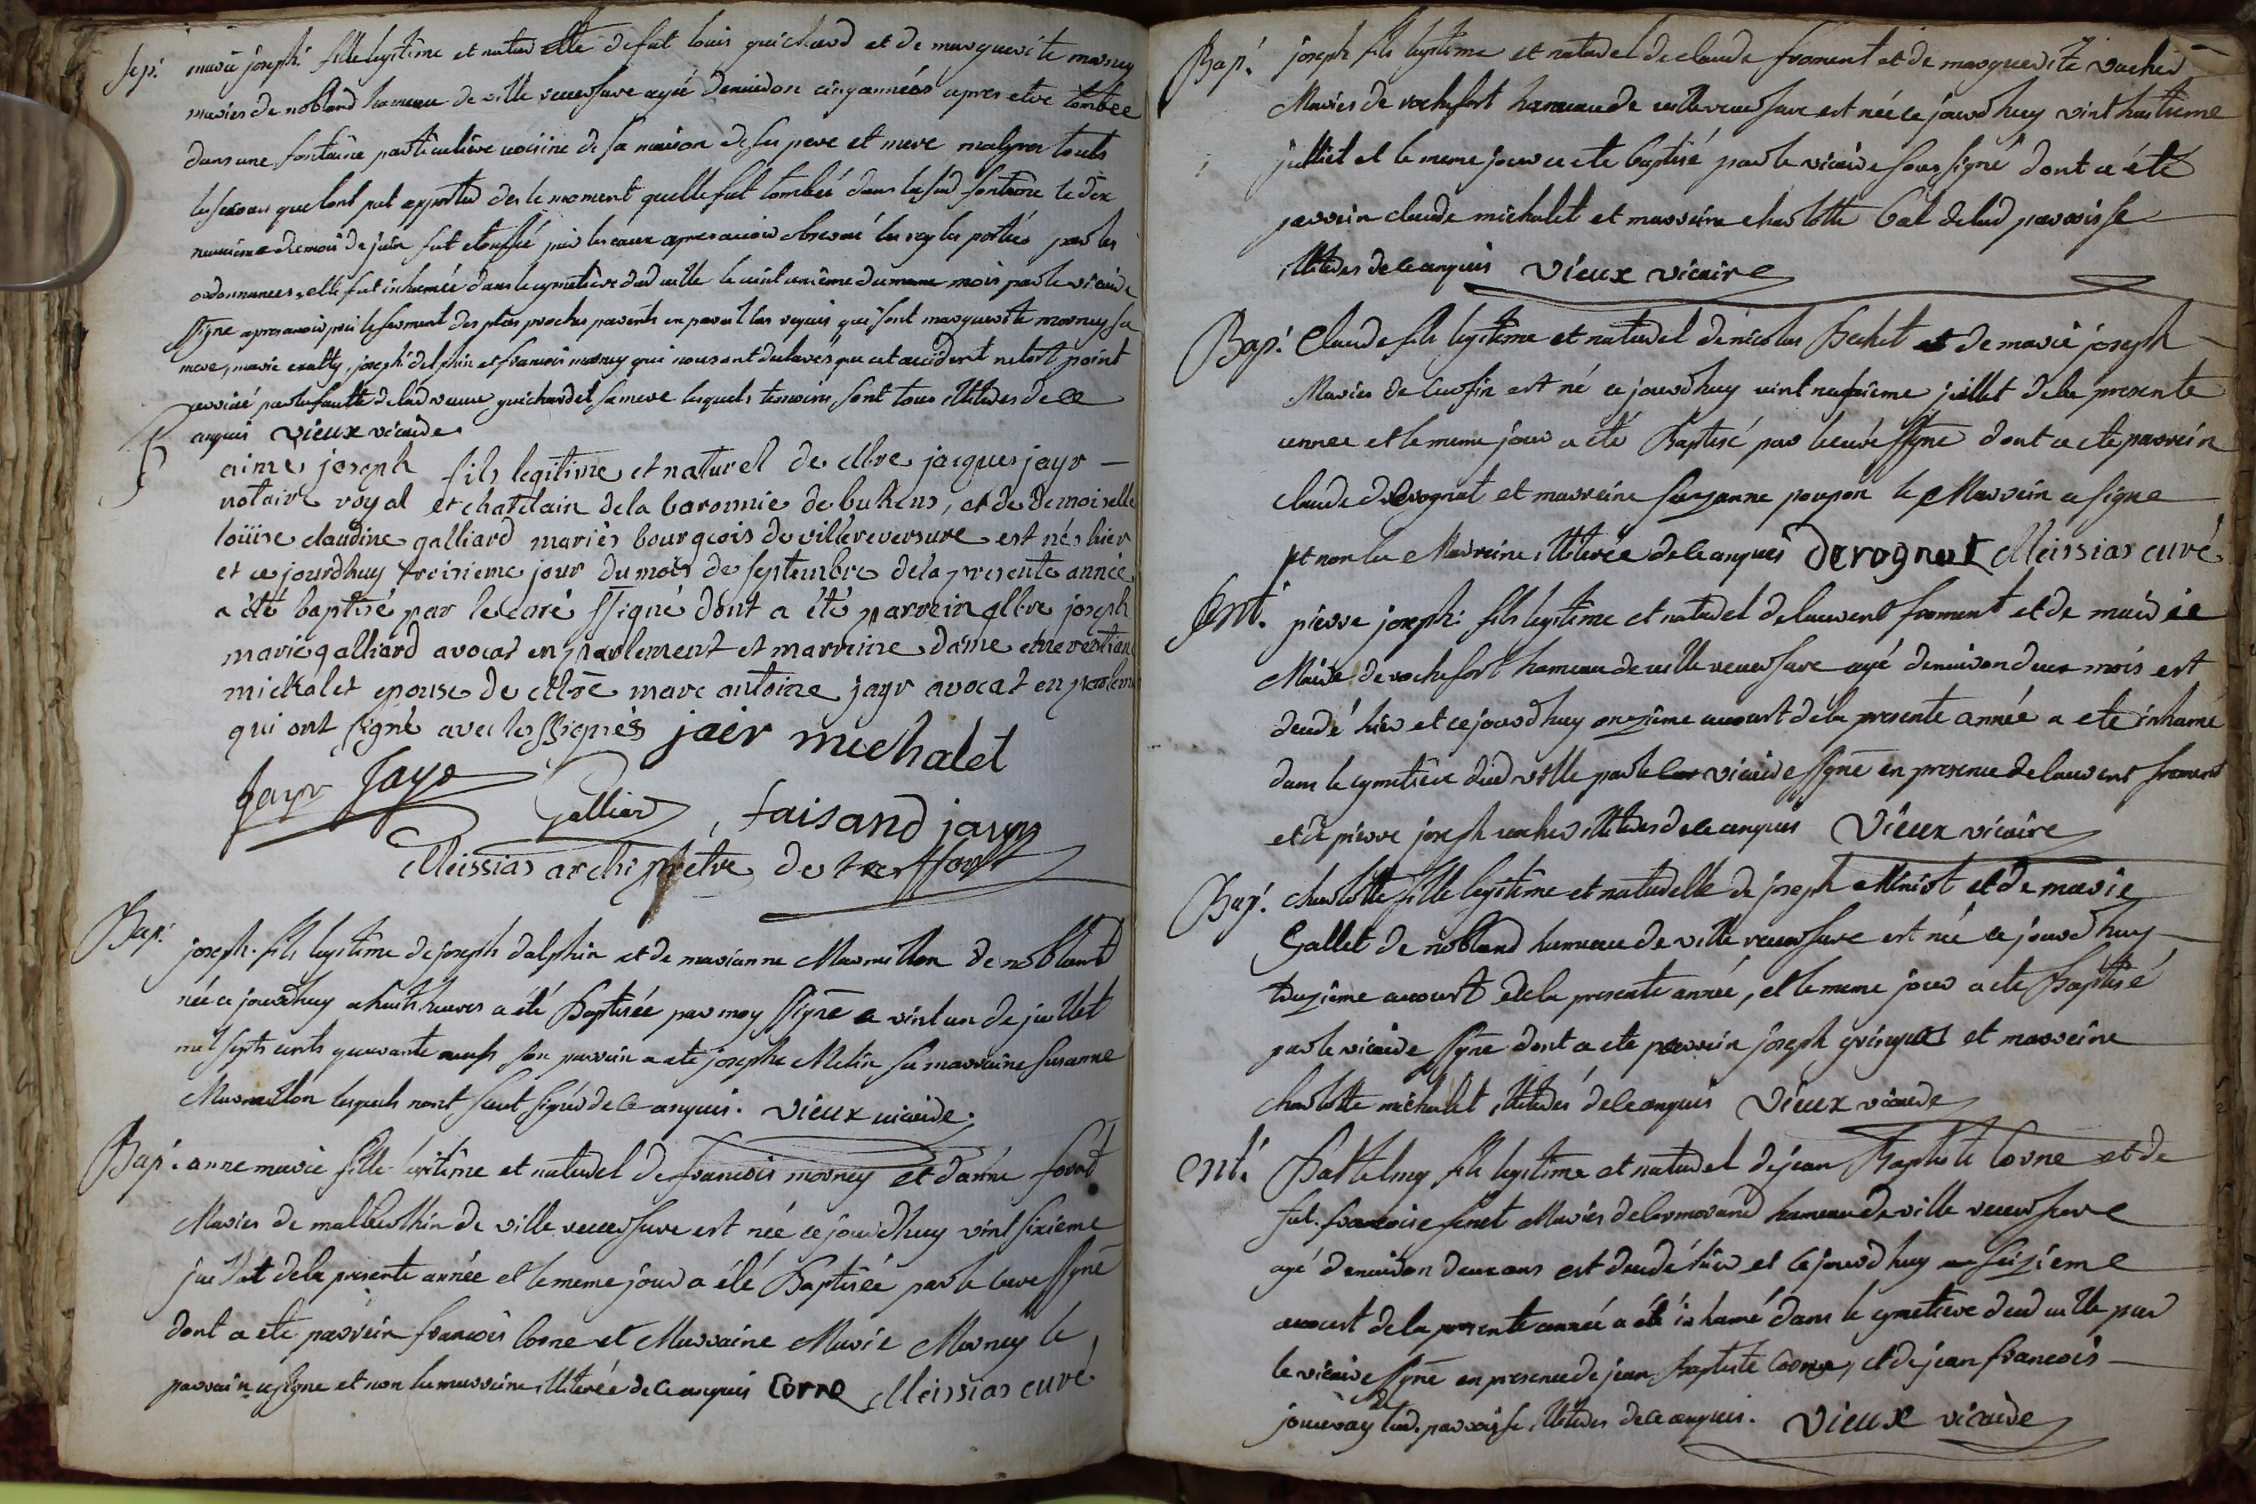 sep: marie joseph. fille legitime et naturelle de fut louis guichard et de marguerite morney
maries de nobland hameau de ville reversure agée denviron cinq années apres etre tombée
dans une fontaine particuliere voisine de la maison de ses pere et mere malgrez touts
les secours que lont put apporter des le moment quelle fut tombée dans lad fontaine le dix
neuvieme du mois de juin fut etouffée par les eaux apres avoir observé les regles portées par les
ordonnances, elle fut inhumée dans le cymetière dud ville le vint unième du meme mois par le vicaire
ssigné apres avoir pris le serment des plus proches parents en pareil cas requis qui sont marguerite morney sa
mere, marie , joseph delphin et francois morney qui nous ont declarés que cet accident netoit point
arrivé par la faute de lad veuve guichardet sa mere lesquels temoins sont tous illiteres de ce
enquis vieux vicaire
B aime joseph fils legitime et naturel de Mre jacques jayr
notaire royal et chatelain de la baronnie de buhens, et de Demoiselle
loüise claudine galliard mariés bourgeois de villereversure est nés hier
et ce jourdhuy troisieme jour du mois de septembre dela presente année
a été baptisé par le curé ssigné dont a été parrein Mre joseph
marie galliard avocat en parlement et marreine dame
michalet epouse de Mre marc antoine jayr avocat en parlem
qui ont signé avec les ssignés jair michalet
jayr Jayr
Galliard faisand jayr
Meissias archiprêtre de treffort
Bap: joseph. fils legitime de joseph dalphin et de marianne Marmillon de nobland
née ce jourdhuy a huits heures a été Baptisée par moy ssigné ce vint un de juillet
mil septs cents quarante son parrain a ete josephe Melin sa marraine susanne
Marmillon lesquels nont scut signés de ce enquis. vieux vicaire
Bap: anne marie fille legitime et naturel de francois morney et danne
Maries de de ville reversure est née ce jourdhuy vint sixieme
juillet dela presente année et le meme jour a été Baptisée par le cure ssigné
dont a ete parrein francois Corne et Marraine Marie Morney le
parrain a signe et non la marreine illiterée de ce enquis Corne Meissias curé
Bap: joseph fils legitime et naturel de claude froment et de marguerite vacher
Maries de rochefort hameau de ville reversure est née ce jourdhuy vint huitieme
julliet et le meme jour a ete baptisé par le vicaire sous signé dont a été
parrein claude michalet et marreine charlotte Cal delad parroisse
illiteres de ce enquis vieux vicaire
Bap: Claude fils legitime et naturel de nicolas Bechet et de marie joseph
Maries de est né ce jourdhuy vint neufvieme juillet dela presente
annee et le meme jour a eté Baptisé par le curé ssigne dont a ete parrein
claude derognat et marreine suzanne poupon le Parrein a signe
et non la Marreine illiterée de ce enquis Derognat Meissias curé
Ent: pierre joseph. fils legitime et naturel de laurent froment et de marie
de rochefort hameau de ville reversure agé denviron deux mois est
decedé hier et ce jourdhuy onzieme aoust dela presente année a ete inhumé
dans le cymetière dud ville par le vicaire ssigne en presence de laurent froment
et de pierre joseph vacher illiteres de ce enquis Vieux vicaire
Bap: charlotte fille legitime et naturelle de joseph Miniot et de marie
Gallet de nobland hameau de ville reversure est née ce jourdhuy
aoust dela presente année, et le meme jour a ete Baptisé
par le vicaire ssigne dont a ete parrein joseph et marreine
charlotte michalet illiteres de ce enquis Vieux vicaire
Ent: Battelmy fils legitime et naturel de jean Baptiste Corne et de
fut francoise Maries de hameau de ville reversure
agé denviron deux ans est decedé hier et ce jourdhuy seizieme
aoust de la presente année a été inhumé dans le cymetiere dud ville par
le vicaire ssigne en presence de jean Baptiste Corne, et de jean francois
de lad. parroisse illiteres de ce enquis. Vieux vicaire